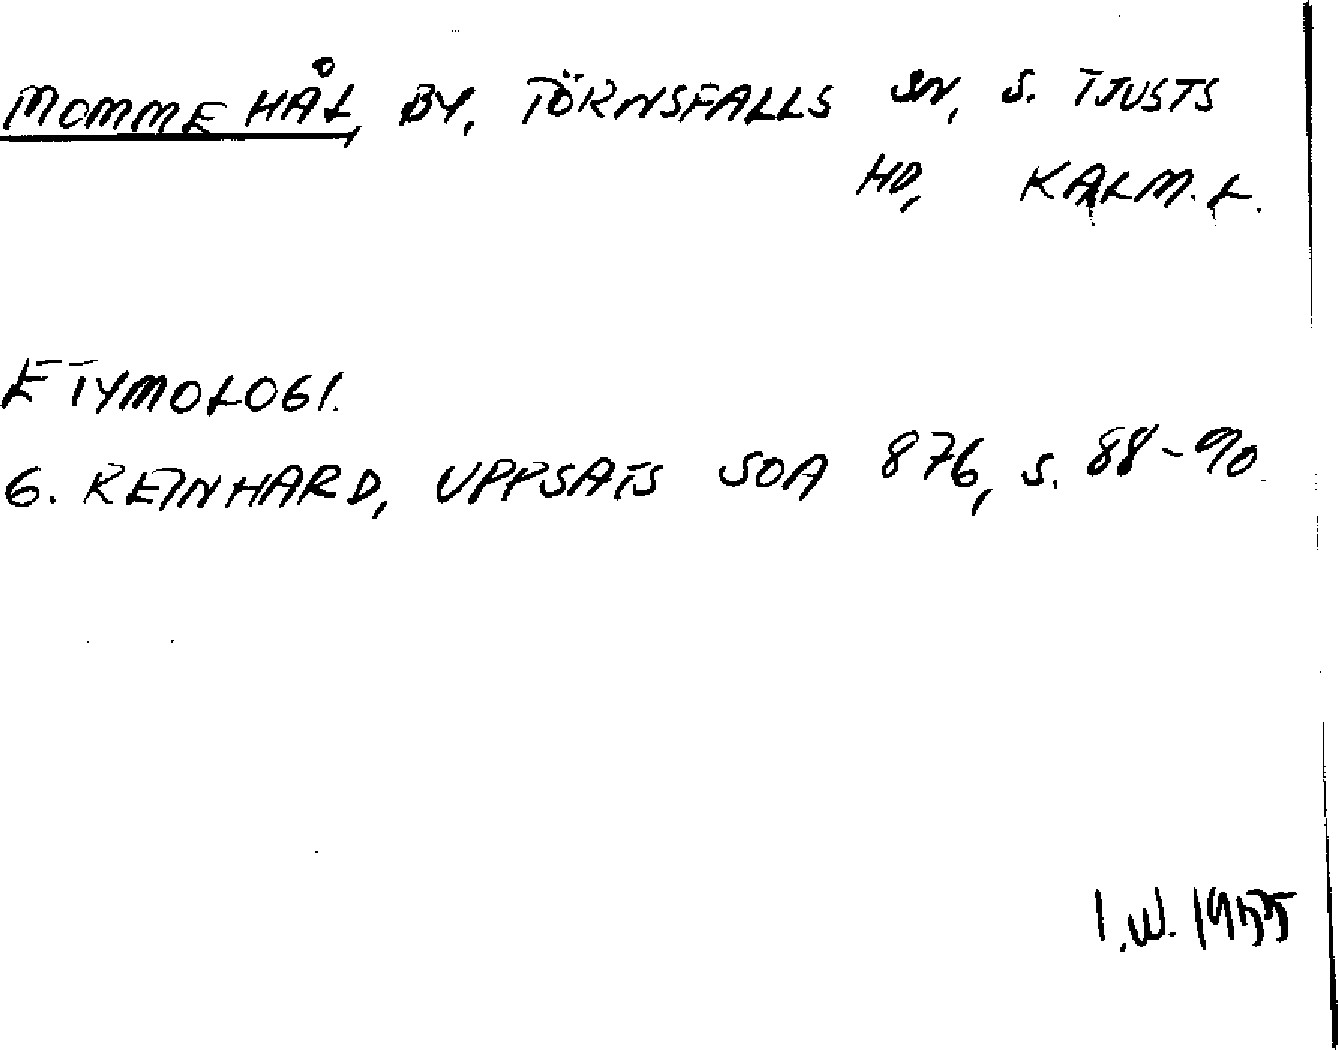 MOMMEHÅL, BY, TÖRNSFALLS SN, S. TJUSTS
HD, KALM. L.
ETYMOLOGI.
G. REINHARD, UPPSATS SOA 876, S. 88-90.
I.W. 1955